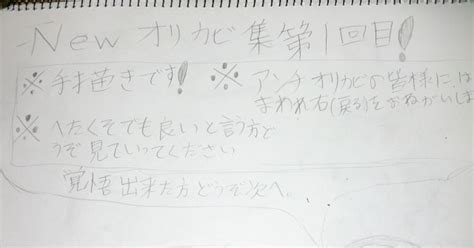 -New オリカビ集第1回目!
※手描きです!
※アンチオリカビの皆様に、は
まわれ右(戻る)をおねがいしま
※へたくそでも良いと言う方ど
うぞ見ていってください
覚悟出来た方どうぞ次へ。